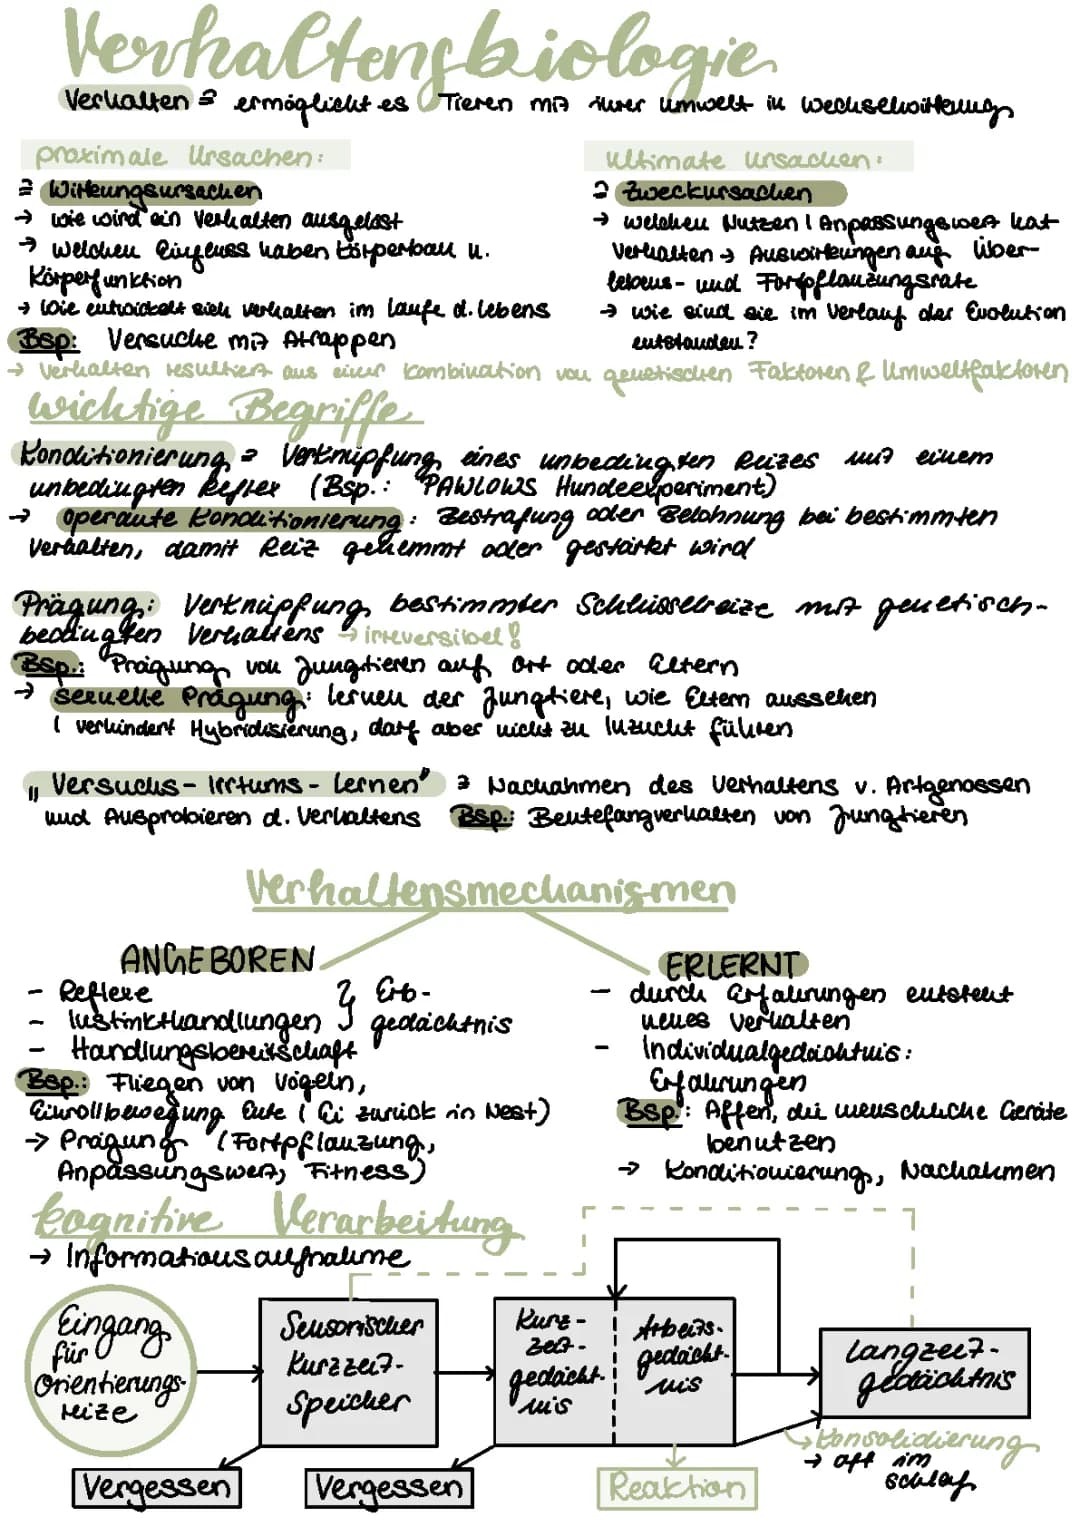 Verhaltensbiologie
Verhalten ≙ ermöglicht es Tieren mit ihrer Umwelt in Wechselwirkung
proximale Ursachen:
≙ Wirkungsursachen
→ wie wird ein Verhalten ausgelöst
→ welchen Einfluss haben Körperbau u.
Körperfunktion
→ Wie entwickelt sich Verhalten im Laufe d. Lebens
Bsp: Versuche mit Atrappen
ultimate Ursachen:
≙ Zweckursachen
→ welchen Nutzen / Anpassungswert hat
Verhalten → Auswirkungen auf Über-
lebens- und Fortpflanzungsrate
→ wie sind sie im Verlauf der Evolution
entstanden?
→ Verhalten resultiert aus einer Kombination von genetischen Faktoren & Umweltfaktoren
wichtige Begriffe
Konditionierung ≙ Verknüpfung eines unbedingten Reizes mit einem
unbedingten Reflex (Bsp.: PAWLOWS Hundeexperiment)
→ operante Konditionierung: Bestrafung oder Belohnung bei bestimmten
Verhalten, damit Reiz gehemmt oder gestärkt wird
Prägung: Verknüpfung bestimmter Schlüsselreize mit genetisch-
bedingten Verhaltens → irreversibel!
Bsp.: Prägung von Jungtieren auf Ort oder Eltern
→ sexuelle Prägung: lernen der Jungtiere, wie Eltern aussehen
( verhindert Hybridisierung, darf aber nicht zu Inzucht führen
„Versuchs-Irrtums-Lernen" ≙ Nachahmen des Verhaltens v. Artgenossen
und Ausprobieren d. Verhaltens Bsp.: Beutefangverhalten von Jungtieren
Verhaltensmechanismen
ANGEBOREN
- Reflexe
- Instinkthandlungen } Erb-
gedächtnis
- Handlungsbereitschaft
Bsp.: Fliegen von Vögeln,
Einrollbewegung Ente (Ei zurück in Nest)
→ Prägung (Fortpflanzung,
Anpassungswert, Fitness)
ERLERNT
- durch Erfahrungen entsteht
neues Verhalten
- Individualgedächtnis:
Erfahrungen
Bsp.: Affen, die menschliche Geräte
benutzen
→ Konditionierung, Nachahmen
kognitive Verarbeitung
→ Informationsaufnahme
Eingang
für
Orientierungs-
reize
Sensorischer
Kurzzeit-
Speicher
Kurz-
zeit-
gedächt-
nis
Arbeits-
gedächt-
nis
Langzeit-
gedächtnis
→ Konsolidierung
→ oft im
Schlaf
Vergessen
Vergessen
Reaktion